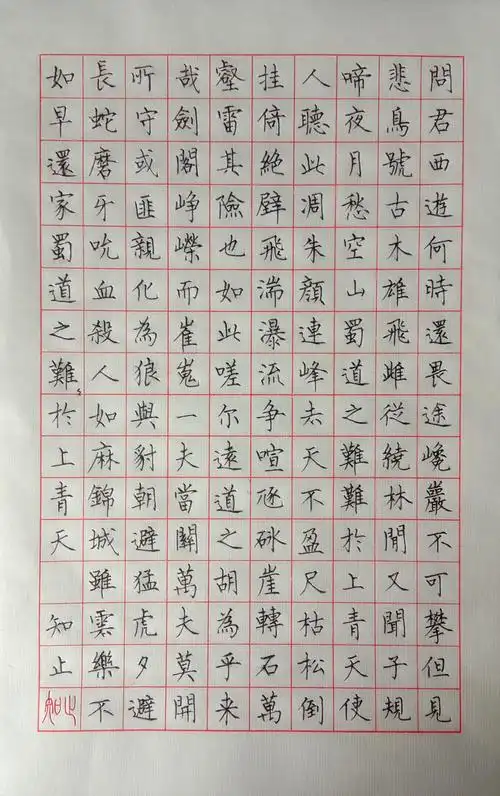 問君西遊何時還畏途巉巖不可攀但見
悲鳥號古木雄飛雌従繞林間又聞子規
啼夜月愁空山蜀道之難難於上青天使
人聽此凋朱顏連峰去天不盈尺枯松倒
挂倚絕壁飛湍瀑流争喧豗砯崖轉石萬
壑雷其險也如此嗟尔遠道之胡為乎来
哉劍閣崢嶸而崔嵬一夫當關萬夫莫開
所守或匪親化為狼與豺朝避猛虎夕避
長蛇磨牙吮血殺人如麻錦城雖雲樂不
如早還家蜀道之難々於上青天 知止
知止